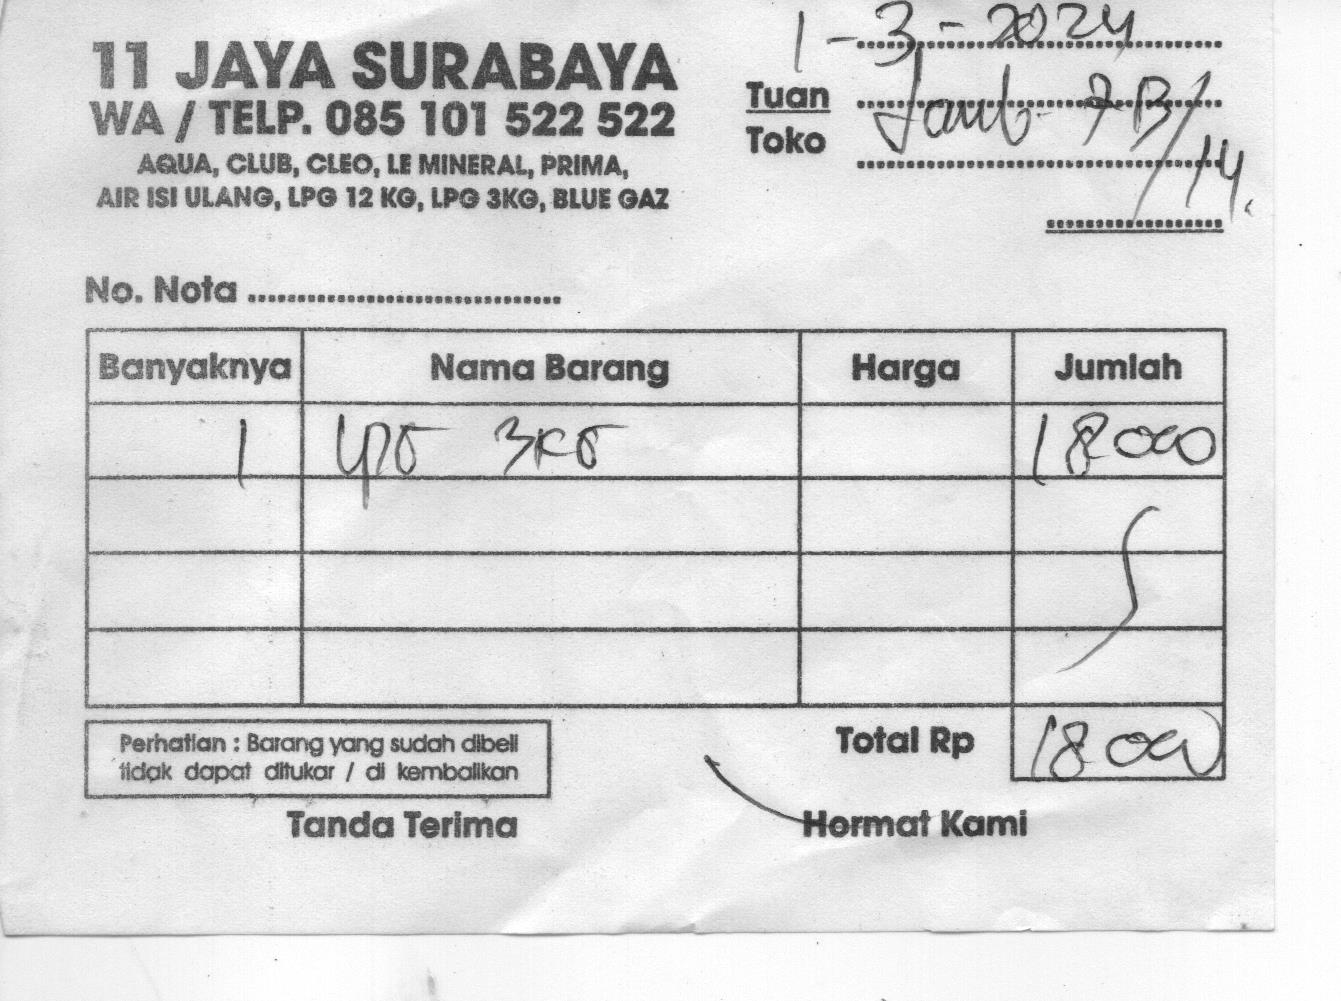 1-3-2024
11 JAYA SURABAYA
WA / TELP. 085 101 522 522
AQUA, CLUB, CLEO, LE MINERAL, PRIMA,
AIR ISI ULANG, LPG 12 KG, LPG 3KG, BLUE GAZ
Tuan 7B/
Toko 14.
No. Nota
Banyaknya Nama Barang Harga Jumlah
1 LPG 3KG 18000
Total Rp 18000
Perhatian : Barang yang sudah dibeli
tidak dapat ditukar / di kembalikan
Tanda Terima Hormat Kami